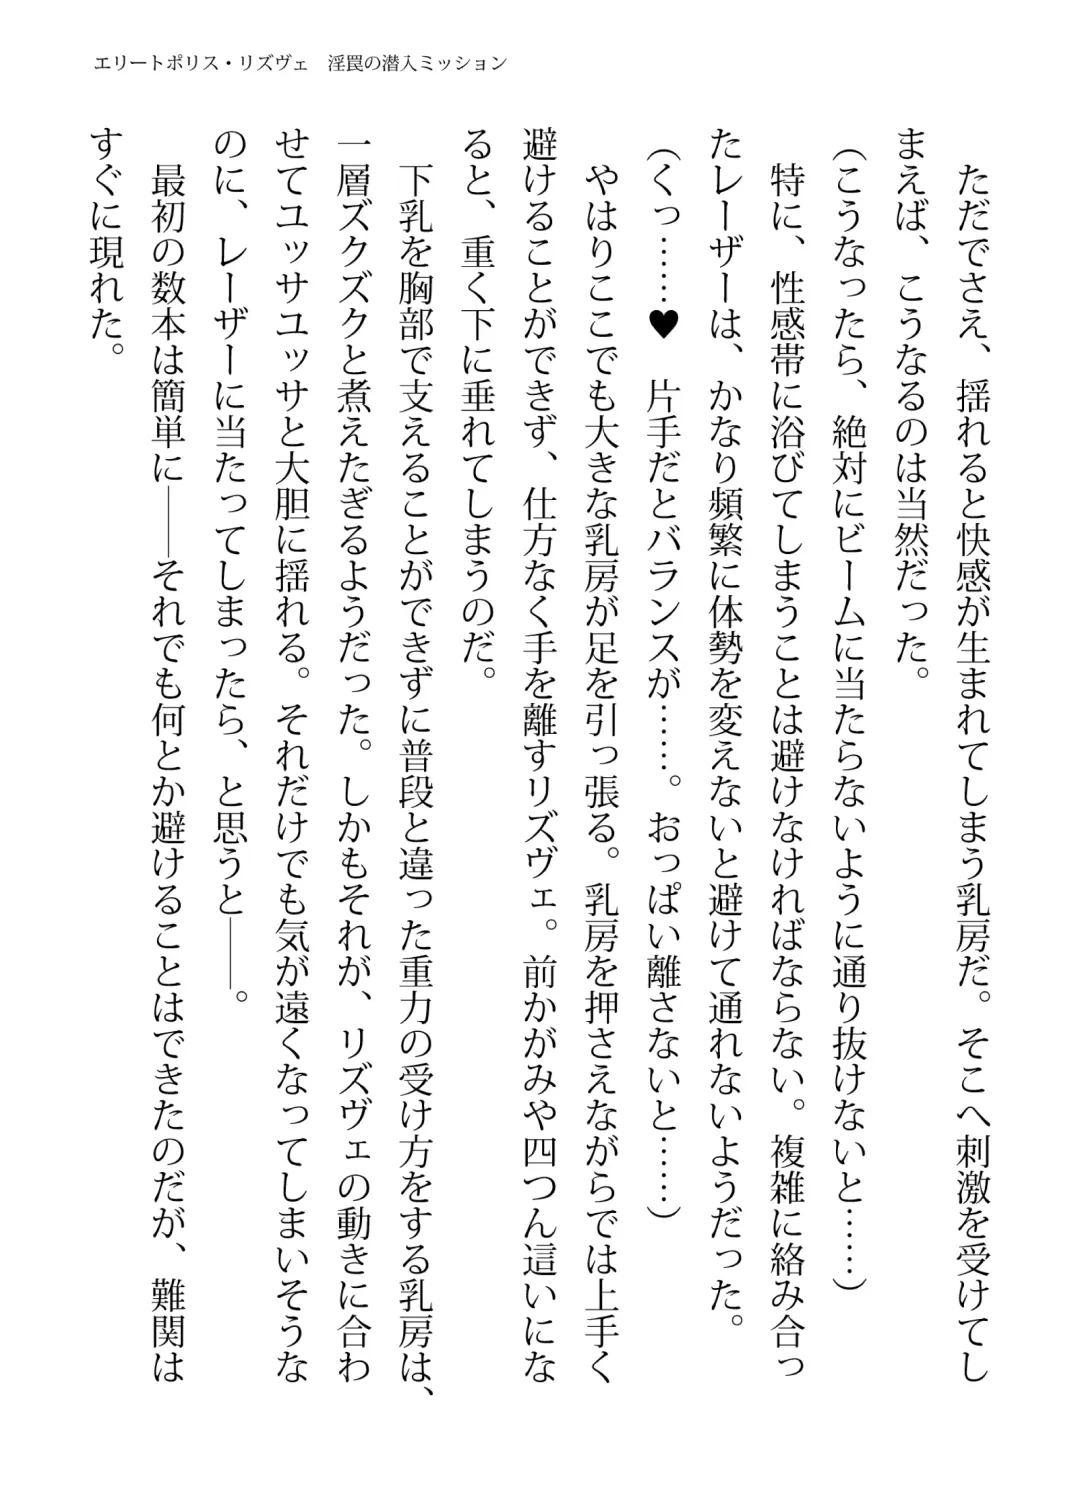 エリートポリス・リズヴェ　淫罠の潜入ミッション
　ただでさえ、揺れると快感が生まれてしまう乳房だ。そこへ刺激を受けてし
まえば、こうなるのは当然だった。
（こうなったら、絶対にビームに当たらないように通り抜けないと……）
　特に、性感帯に浴びてしまうことは避けなければならない。複雑に絡み合っ
たレーザーは、かなり頻繁に体勢を変えないと避けて通れないようだった。
（くっ……♥　片手だとバランスが……。おっぱい離さないと……）
　やはりここでも大きな乳房が足を引っ張る。乳房を押さえながらでは上手く
避けることができず、仕方なく手を離すリズヴェ。前かがみや四つん這いにな
ると、重く下に垂れてしまうのだ。
　下乳を胸部で支えることができずに普段と違った重力の受け方をする乳房は、
一層ズクズクと煮えたぎるようだった。しかもそれが、リズヴェの動きに合わ
せてユッサユッサと大胆に揺れる。それだけでも気が遠くなってしまいそうな
のに、レーザーに当たってしまったら、と思うと――。
　最初の数本は簡単に――それでも何とか避けることはできたのだが、難関は
すぐに現れた。